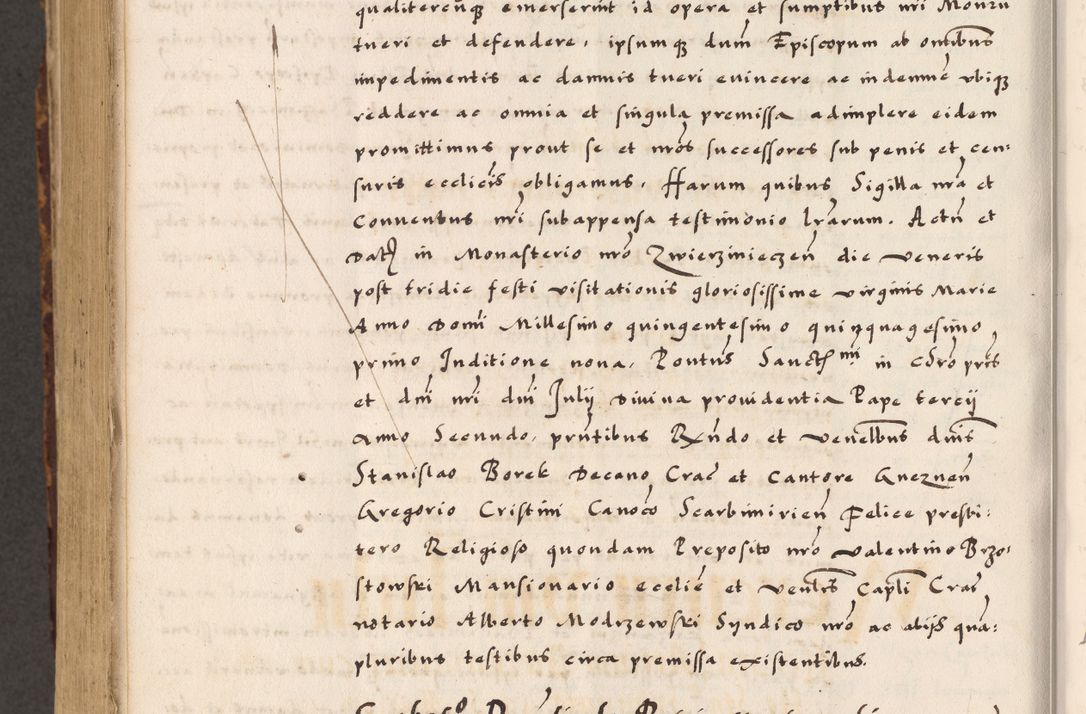 qualitercunqz emerserint id opera et sumptibus nri Monru
tueri et defendere, ipsumqz dum Episcopum ab omībus
impedimentis ac damnis tueri euincere ac indemnē vbiqz
reddere ac omnia et singula premissa adimplere eidem
promittimus prout se et nrōs successores sub penis et cen:
suris eccliēis obligamus, Harum quibus Sigilla nrā et
Conuentus nrī subappensa testimonio lrārum. Actū et
Dat in Monasterio nrō Zwierzinieczeñ die veneris
post tridie festi visitationis gloriosissime virginis Marie
Anno Domī Millesimo quingentesimo quinquagesimo
primo Inditione nona, Pontus̄ Sanct mi in chrō prīs
et dnī nrī dnī Julij diuina prouidentia Pape tercij
anno Secundo, prntibus Rndo et venelbus dnīs
Stanislao Borek Decano Crac et Cantore Gnezneñ
Gregorio Cristini Canoco Scarbimirieñ Felice presbi:
tero Religioso quondam Preposito nrō valentino Brzo:
stowski Mansionario eccliē et ventlis Capli Crac
notario Alberto Modrzewski Syndico nrō ac alijs quā:
pluribus testibus circa premissa existentibus.